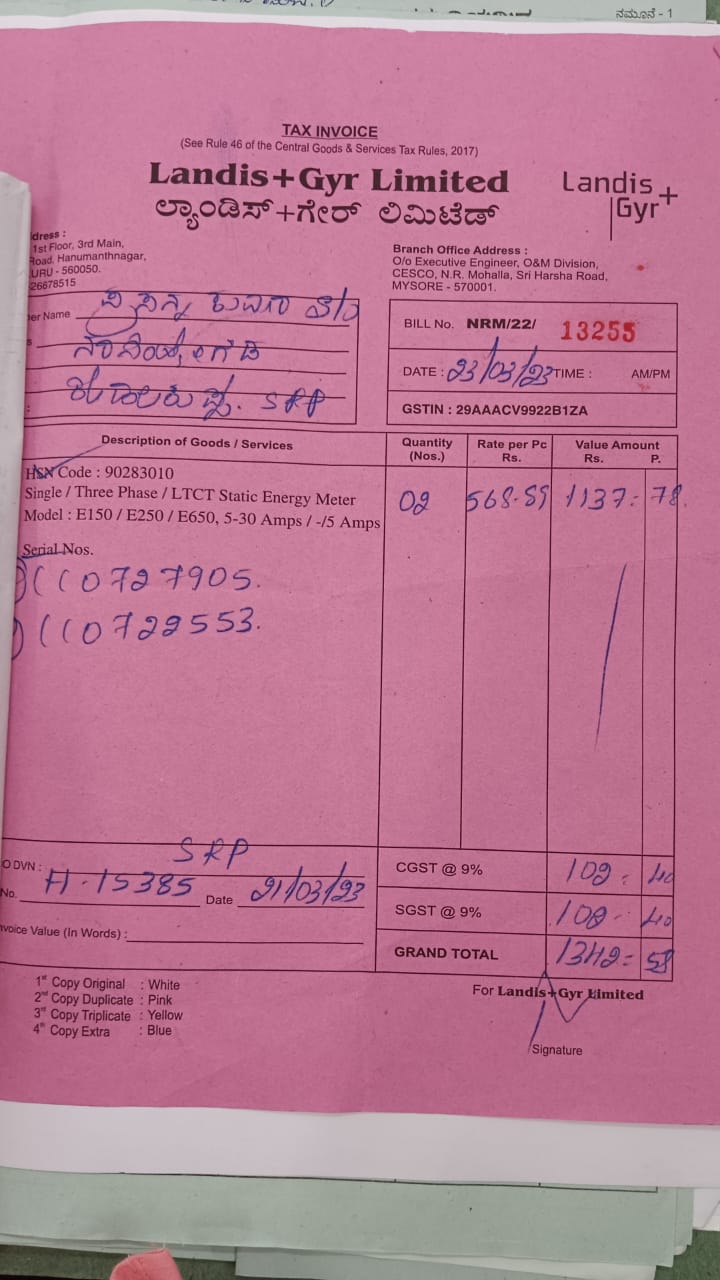 ನಮೂನೆ - 1
TAX INVOICE
(See Rule 46 of the Central Goods & Services Tax Rules, 2017)
Landis+Gyr Limited
ಲ್ಯಾಂಡಿಸ್+ಗೇರ್ ಲಿಮಿಟೆಡ್
Landis+
Gyr
dress :
1st Floor, 3rd Main,
Road, Hanumanthnagar,
URU - 560050.
26678515
Branch Office Address :
O/o Executive Engineer, O&M Division,
CESCO, N.R. Mohalla, Sri Harsha Road,
MYSORE - 570001.
er Name S/o
SRP
BILL No. NRM/22/ 13255
DATE : 23/03/23 TIME : AM/PM
GSTIN : 29AAACV9922B1ZA
Description of Goods / Services Quantity (Nos.) Rate per Pc Rs. Value Amount Rs. P.
HSN Code : 90283010
Single / Three Phase / LTCT Static Energy Meter 02 568.89 1137 = 78
Model : E150 / E250 / E650, 5-30 Amps / -/5 Amps
Serial Nos.
110727905.
110722553.
O DVN : SRP
No. H-15385 Date 21/03/23
nvoice Value (In Words) :
CGST @ 9% 102 = 40
SGST @ 9% 102 - 40
GRAND TOTAL 1342 = 58
1st Copy Original : White
2nd Copy Duplicate : Pink
3rd Copy Triplicate : Yellow
4th Copy Extra : Blue
For Landis+Gyr Limited
Signature